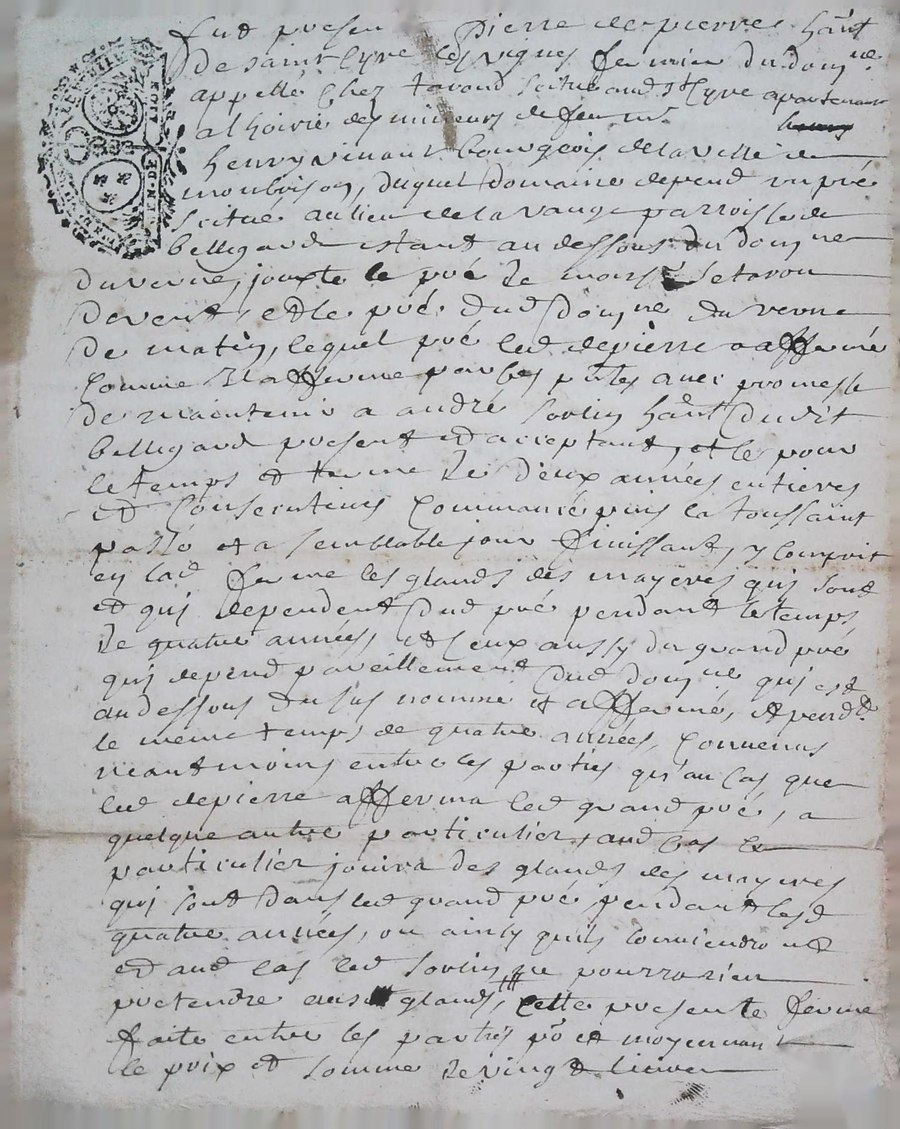 fut present Pierre depierre hant
de saint Cyre les vignes fermier du domne
appellé chez tavaud scitue aud st Cyre apartenant
a lhoirie des mineurs de feu mr
henry vinant bourgeois de la ville de
monbrison, duquel domaine depend un pré
scitué au lieu de la vauge parroisse de
bellegarde estant au dessous du domne
du verne, jouxte le pré de
de vent, et le pré dud domne du verne
de matin, lequel pré led depierre a affermé
comme Il afferme par ces pntes avec promesse
de maintenir a andré sorlin hant dudit
bellegarde present et acceptant, et ce pour
le temps et terme de deux années entieres
et consecutives commancé puis la toussaint
passé et a semblable jour finissant, y compris
en lad ferme les glands des mayeres qui sont
et qui dependent dud pré pendant le temps
de quatre années, et ceux aussy du grand pré
qui depend pareillement dud domne qui est
au dessous du sus nommé et affermé, et pendt
le meme temps de quatre années, convenus
neantmoins entre les parties qu'au cas que
led depierre afferma led grand pré, a
quelque autre particulier, aud cas le
particulier jouira des glands des mayeres
qui sont dans led grand pré pendant lesd
quatre années, ou ainsy quils conviendront
et aud cas led sorlin ne pourra rien
pretendre ausd glands, cette presente ferme
faite entre les parties pr et moyennant
le prix et somme de vingt livres